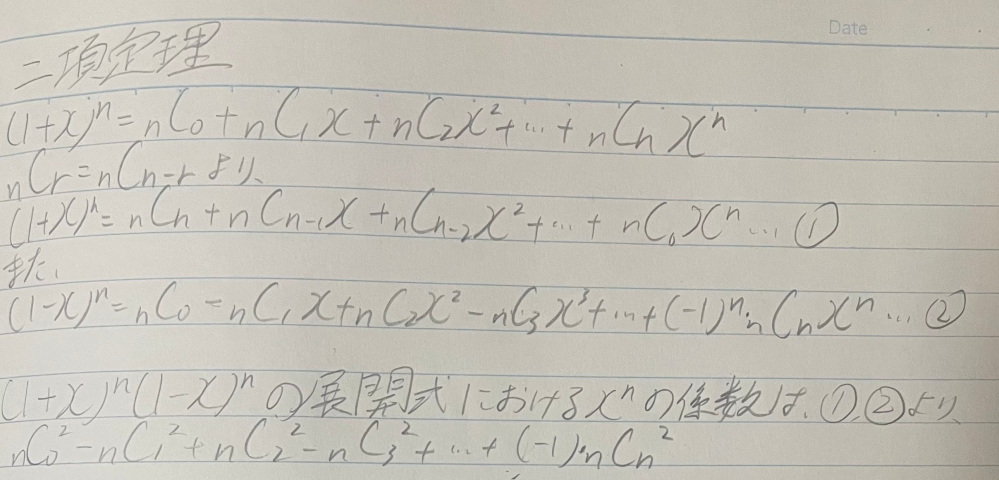 Date
二項定理
(1+x)^n = nC0 + nC1x + nC2x^2 + … + nCn x^n
nCr = nCn-r より、
(1+x)^n = nCn + nCn-1x + nCn-2x^2 + … + nC0x^n … ①
また、
(1-x)^n = nC0 - nC1x + nC2x^2 - nC3x^3 + … + (-1)^n・nCnx^n … ②
(1+x)^n(1-x)^n の展開式におけるx^nの係数は、①,②より、
nC0^2 - nC1^2 + nC2^2 - nC3^2 + … + (-1)・nCn^2